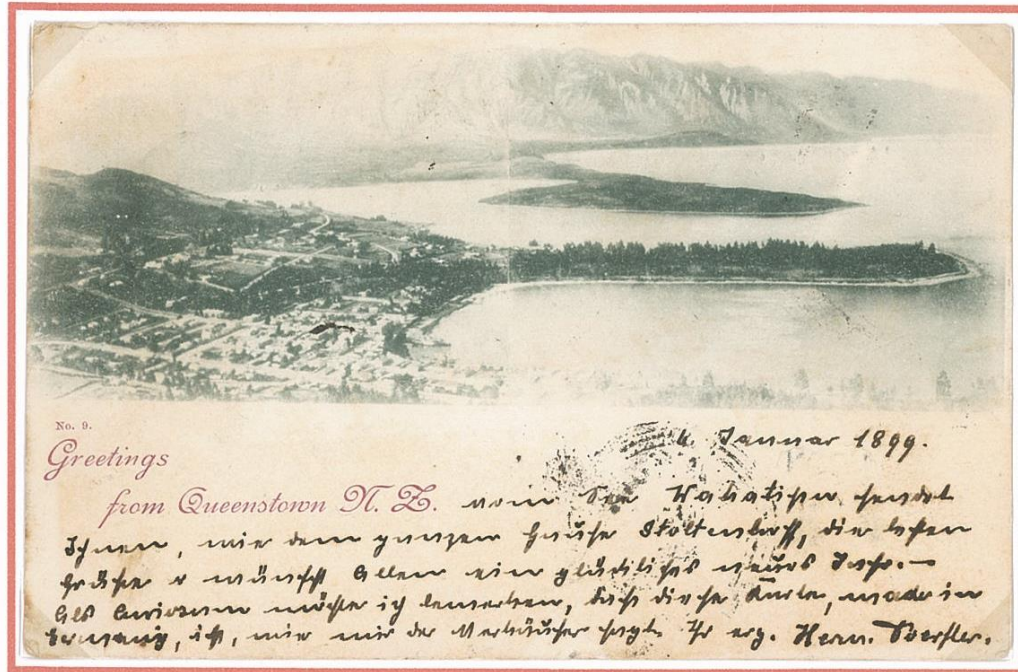 No. 9.
Greetings
6. Januar 1899.
from Queenstown N. Z. vom See Wakatipu sendet
Ihnen, wie dem ganzen Hause Stoltendorff, die besten
Grüße & wünscht Allen ein glückliches neues Jahr.—
Als Curiosum möchte ich bemerken, daß diese Karte, made in
Germany, ist, wie mir der Verkäufer sagt. Ihr erg. Herm.